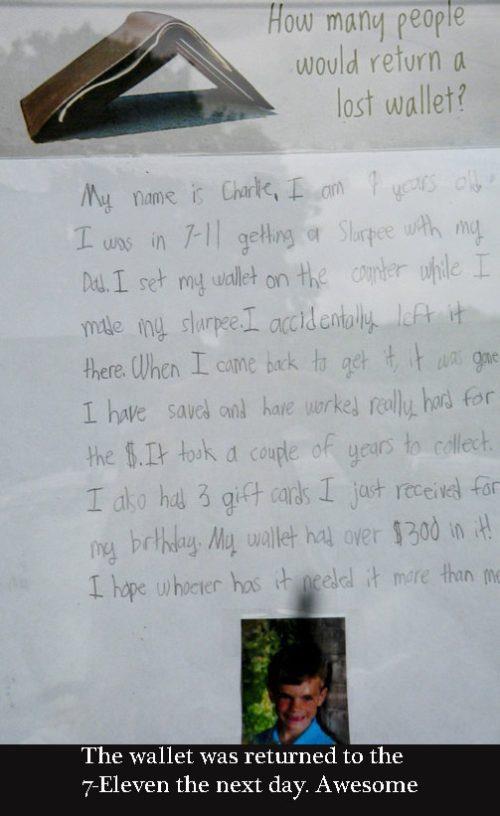 How many people
would return a
lost wallet?
My name is Charlie, I am years old.
I was in 7-11 getting a Slurpee with my
Dad. I set my wallet on the counter while I
made my slurpee. I accidentally left it
there. When I came back to get it, it was gone
I have saved and have worked really hard for
the $. It took a couple of years to collect.
I also had 3 gift cards I just received for
my birthday. My wallet had over $300 in it!
I hope whoever has it needed it more than me
The wallet was returned to the
7-Eleven the next day. Awesome